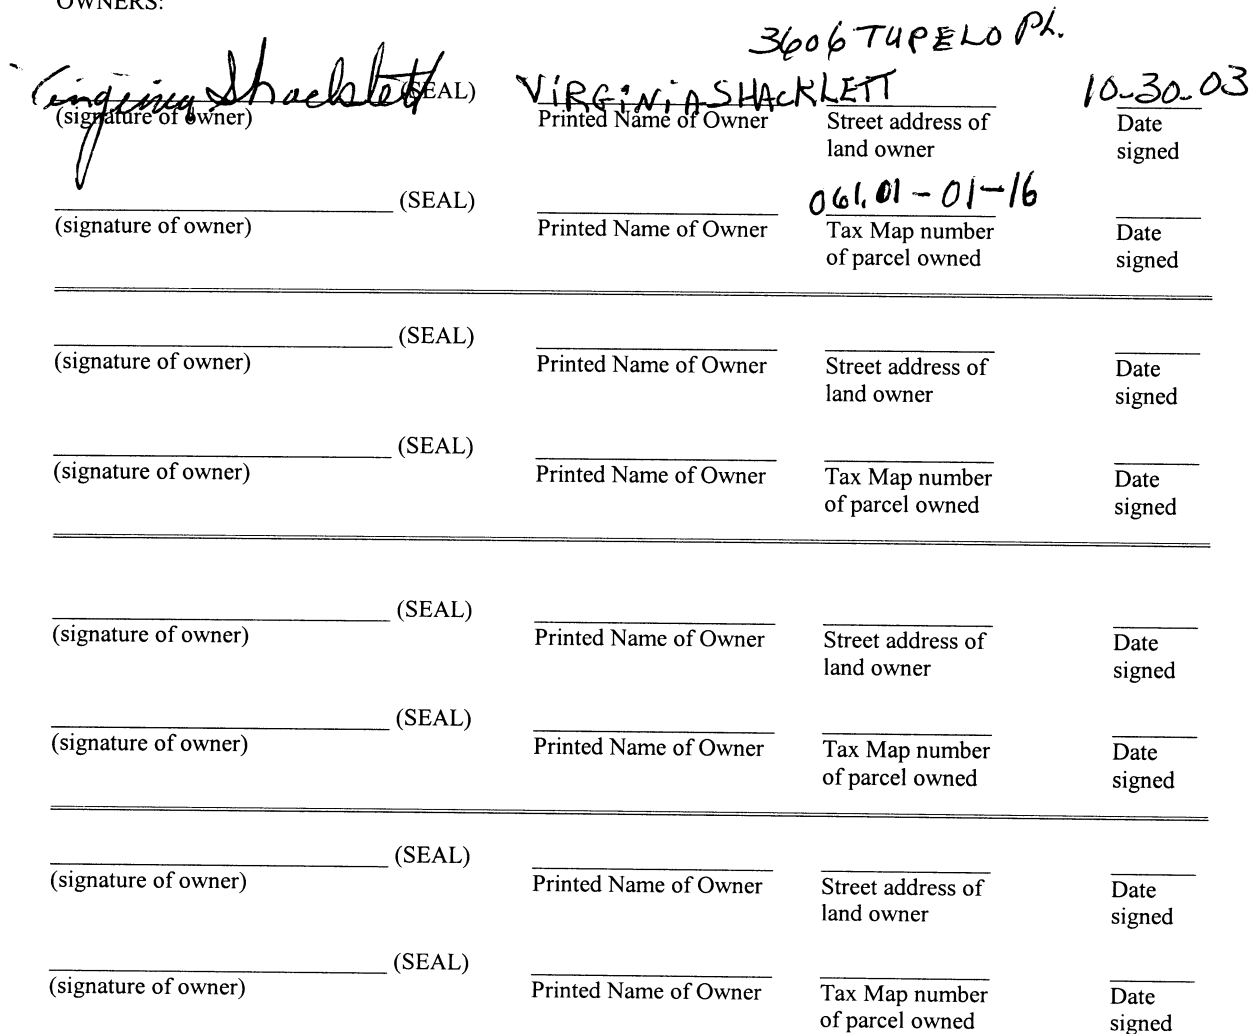 OWNERS:
3606 TUPELO PL.
Virginia Shacklett (SEAL) VIRGINIA SHACKLETT 10-30-03
(signature of owner) Printed Name of Owner Street address of land owner Date signed
061.01-01-16
(SEAL)
(signature of owner) Printed Name of Owner Tax Map number of parcel owned Date signed
(SEAL)
(signature of owner) Printed Name of Owner Street address of land owner Date signed
(SEAL)
(signature of owner) Printed Name of Owner Tax Map number of parcel owned Date signed
(SEAL)
(signature of owner) Printed Name of Owner Street address of land owner Date signed
(SEAL)
(signature of owner) Printed Name of Owner Tax Map number of parcel owned Date signed
(SEAL)
(signature of owner) Printed Name of Owner Street address of land owner Date signed
(SEAL)
(signature of owner) Printed Name of Owner Tax Map number of parcel owned Date signed